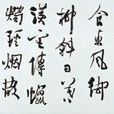 食東風御
柳斜日暮
漢宮傳蠟
燭輕烟散